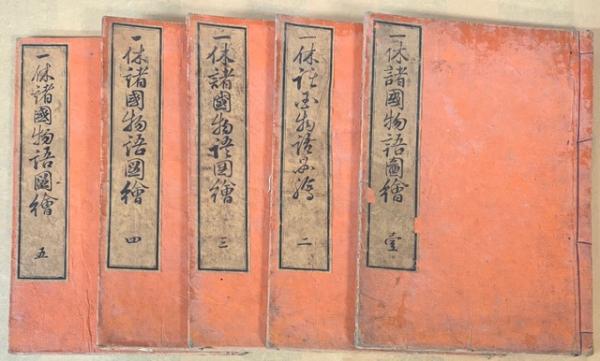 一休諸國物語圖繪 壹
一休諸国物語図絵 二
一休諸國物語図繪 三
一休諸國物語圖繪 四
一休諸國物語圖繪 五